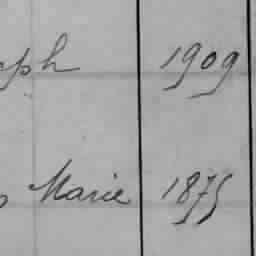 eph 1909
Marie 1875